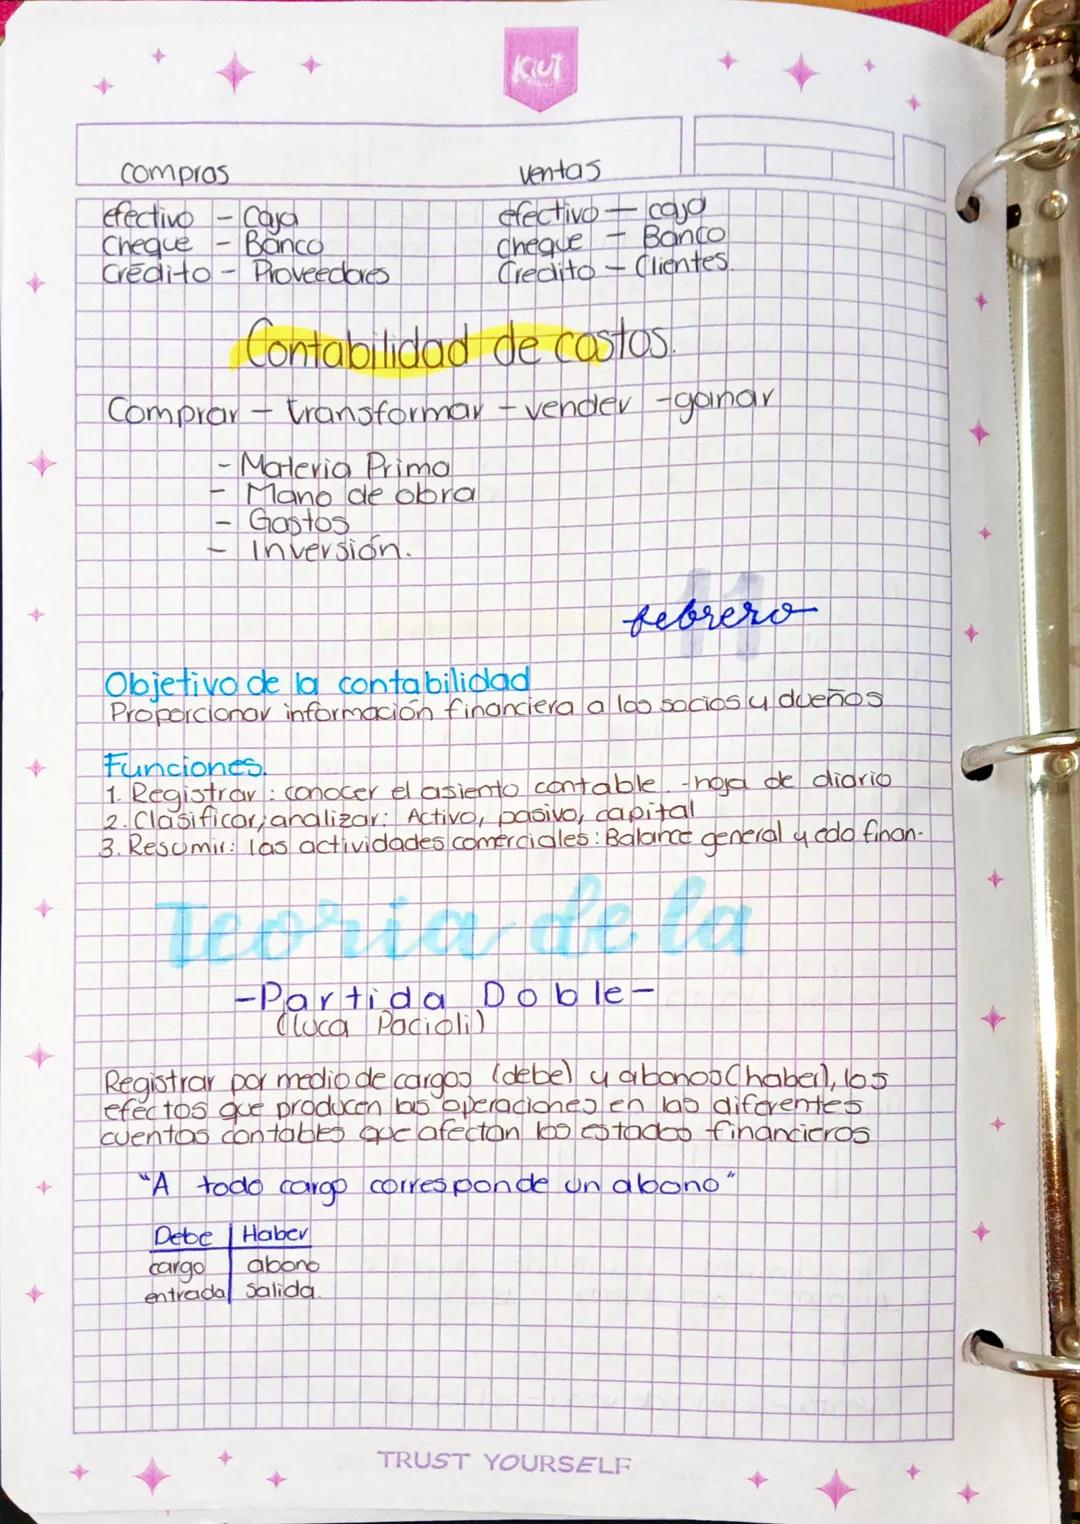 Kiut
compras ventas
efectivo - Caja efectivo - caja
Cheque - Banco cheque - Banco
Crédito - Proveedores Credito - Clientes.
Contabilidad de costos.
Comprar - transformar - vender - ganar
- Materia Prima
- Mano de obra
- Gastos
- Inversión.
11
febrero
Objetivo de la contabilidad
Proporcionar información financiera a los socios y dueños
Funciones.
1. Registrar: conocer el asiento contable. - hoja de diario
2. Clasificar, analizar: Activo, pasivo, capital
3. Resumir: las actividades comerciales: Balance general y edo finan.
Teoria de la
- Partida Doble -
(Luca Pacioli)
Registrar por medio de cargos (debe) y abonos (haber), los
efectos que producen las operaciones en las diferentes
cuentas contables que afectan los estados financieros
"A todo cargo corresponde un abono"
Debe | Haber
cargo | abono
entrada | salida.
TRUST YOURSELF